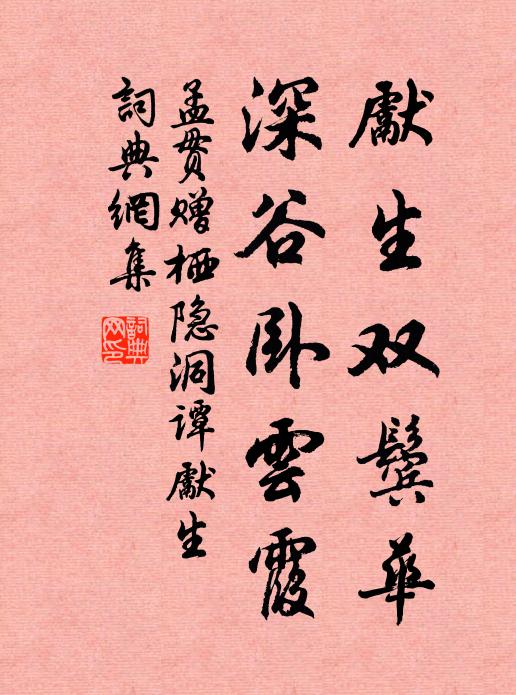 獻生双鬢華
深谷卧雲霞
孟贯赠栖隐洞谭獻生
詞典網集
詞典網印